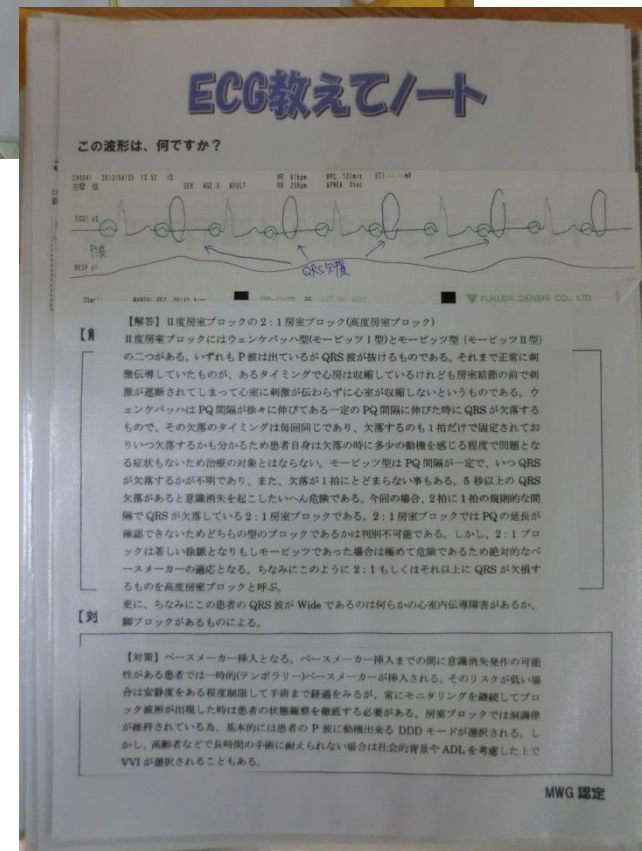 ECG教えてノート
この波形は、何ですか？
CH5541 2012/08/25 13:52 ID
SEX AGE 0 ADULT
VPC 12/min ST1
APNEA 0sec
ECG1 x2
P波
QRS欠損
RESP x1
FUKUDA DENSHI CO., LTD.
【解答】Ⅱ度房室ブロックの2：1房室ブロック(高度房室ブロック)
Ⅱ度房室ブロックにはウェンケバッハ型(モービッツⅠ型)とモービッツ型（モービッツⅡ型)
の二つがある。いずれもP波は出ているがQRS波が抜けるものである。それまで正常に刺
激伝導していたものが、あるタイミングで心房は収縮しているけれども房室結節の前で刺
激が遮断されてしまって心室に刺激が伝わらずに心室が収縮しないというものである。ウ
ェンケバッハはPQ間隔が徐々に伸びてある一定のPQ間隔に伸びた時にQRSが欠落する
もので、その欠落のタイミングは毎回同じであり、欠落するのも1拍だけで固定されてお
りいつ欠落するかも分かるため患者自身は欠落の時に多少の動機を感じる程度で問題とな
る症状もないため治療の対象とはならない。モービッツ型はPQ間隔が一定で、いつQRS
が欠落するかが不明であり、また、欠落が1拍にとどまらない事もある。5秒以上のQRS
欠落があると意識消失を起こしたいへん危険である。今回の場合、2拍に1拍の規則的な間
隔でQRSが欠落している2：1房室ブロックである。2：1房室ブロックではPQの延長が
確認できないためどちらの型のブロックであるかは判別不可能である。しかし、2：1ブロ
ックは著しい徐脈となりもしモービッツであった場合は極めて危険であるため絶対的なペ
ースメーカーの適応となる。ちなみにこのように2：1もしくはそれ以上にQRSが欠損す
るものを高度房室ブロックと呼ぶ。
更に、ちなみにこの患者のQRS波がWideであるのは何らかの心室内伝導障害があるか、
脚ブロックがあるものによる。
【対
【対策】ペースメーカー挿入となる。ペースメーカー挿入までの間に意識消失発作の可能
性がある患者では一時的(テンポラリー)ペースメーカーが挿入される。そのリスクが低い場
合は安静度をある程度制限して手術まで経過をみるが、常にモニタリングを継続してブロ
ック波形が出現した時は患者の状態観察を徹底する必要がある。房室ブロックでは洞調律
が維持されている為、基本的には患者のP波に動機出来るDDDモードが選択される。し
かし、高齢者などで長時間の手術に耐えられない場合は社会的背景やADLを考慮した上で
VVIが選択されることもある。
MWG 認定